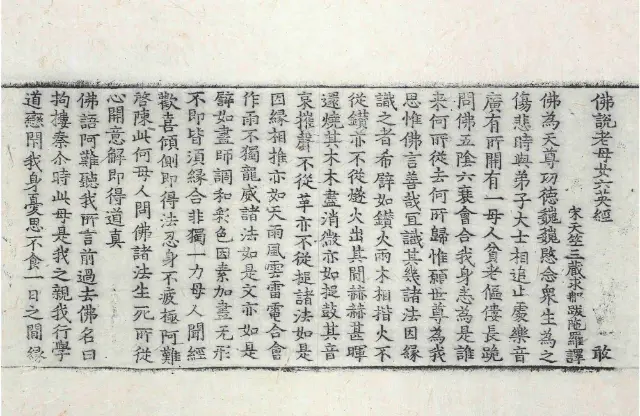 佛說老母女六英經 敢
宋天竺三藏求那跋陀羅譯
佛為天尊功德巍巍愍念衆生為之
傷悲時與弟子大士相追止處樂音
廣有所開有一母人貧老傴僂長跪
問佛五陰六衰會合我身悉為是誰
來何所從去何所歸惟願世尊為我
思惟佛言善哉宜識其幾諸法因緣
識之者希譬如鑽火兩木相揩火不
從鑽亦不從燧火出其間赫赫甚暉
還燒其木木盡消微亦如搥鼓其音
哀摧聲不從革亦不從搥諸法如是
因緣相推亦如天雨風雲雷電合會
作雨不獨龍威諸法如是文亦如是
譬如畫師調和彩色因素加畫无形
不即皆須緣合非獨一力母人聞經
歡喜傾側即得法忍身不疲極阿難
啓陳此何母人問佛諸法生死所從
心開意解即得道真
佛語阿難聽我所言前過去佛名曰
拘摟秦尒時此母是我之親我行學
道戀閉我身憂思不食一日之間緣